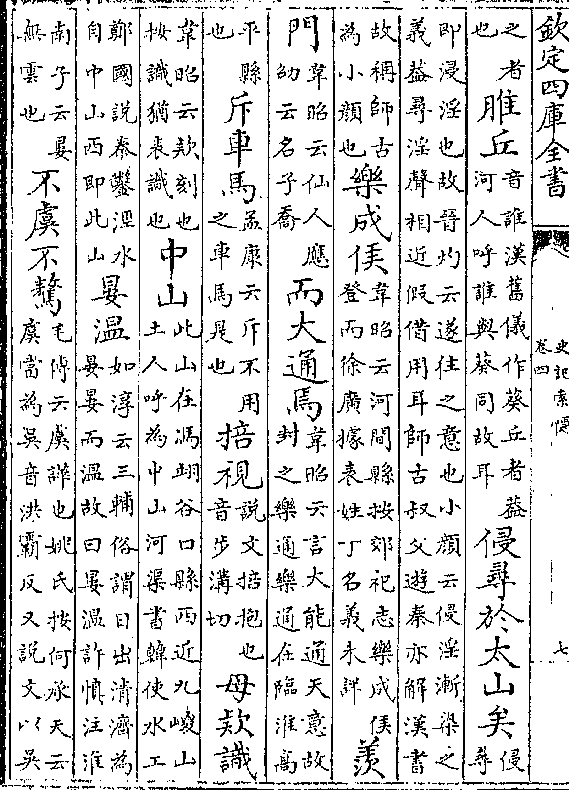 欽定四庫全書
史記索隱
卷四
七
之者
也
脽丘
音誰漢舊儀作葵丘者葢
河人呼誰與葵同故耳
侵尋於太山矣
侵
尋
即浸淫也故晉灼云遂往之意也小顔云侵淫漸染之
義葢尋淫聲相近假借用耳師古叔父遊秦亦解漢書
故稱師古
為小顔也
樂成侯
韋昭云河間縣按郊祀志樂成侯
登而徐廣據表姓丁名義未詳
羡
門
韋昭云仙人應
劭云名子喬
而大通焉
韋昭云言大能通天意故
封之樂通樂通在臨淮高
平縣
也
斥車馬
孟康云斥不用
之車馬是也
掊視
說文掊抱也
音步溝切
毋欵識
韋昭云欵刻也
按識猶表識也
中山
此山在馮翊谷口縣西近九嵕山
土人呼為中山河渠書韓使水工
鄭國說秦鑿涇水
自中山西即此山
晏温
如淳云三輔俗謂日出清濟為
晏晏而温故曰晏温許慎注淮
南子云晏
無雲也
不虞不驁
毛傳云虞譁也姚氏按何承天云
虞當為吳音洪霸反又說文以吳